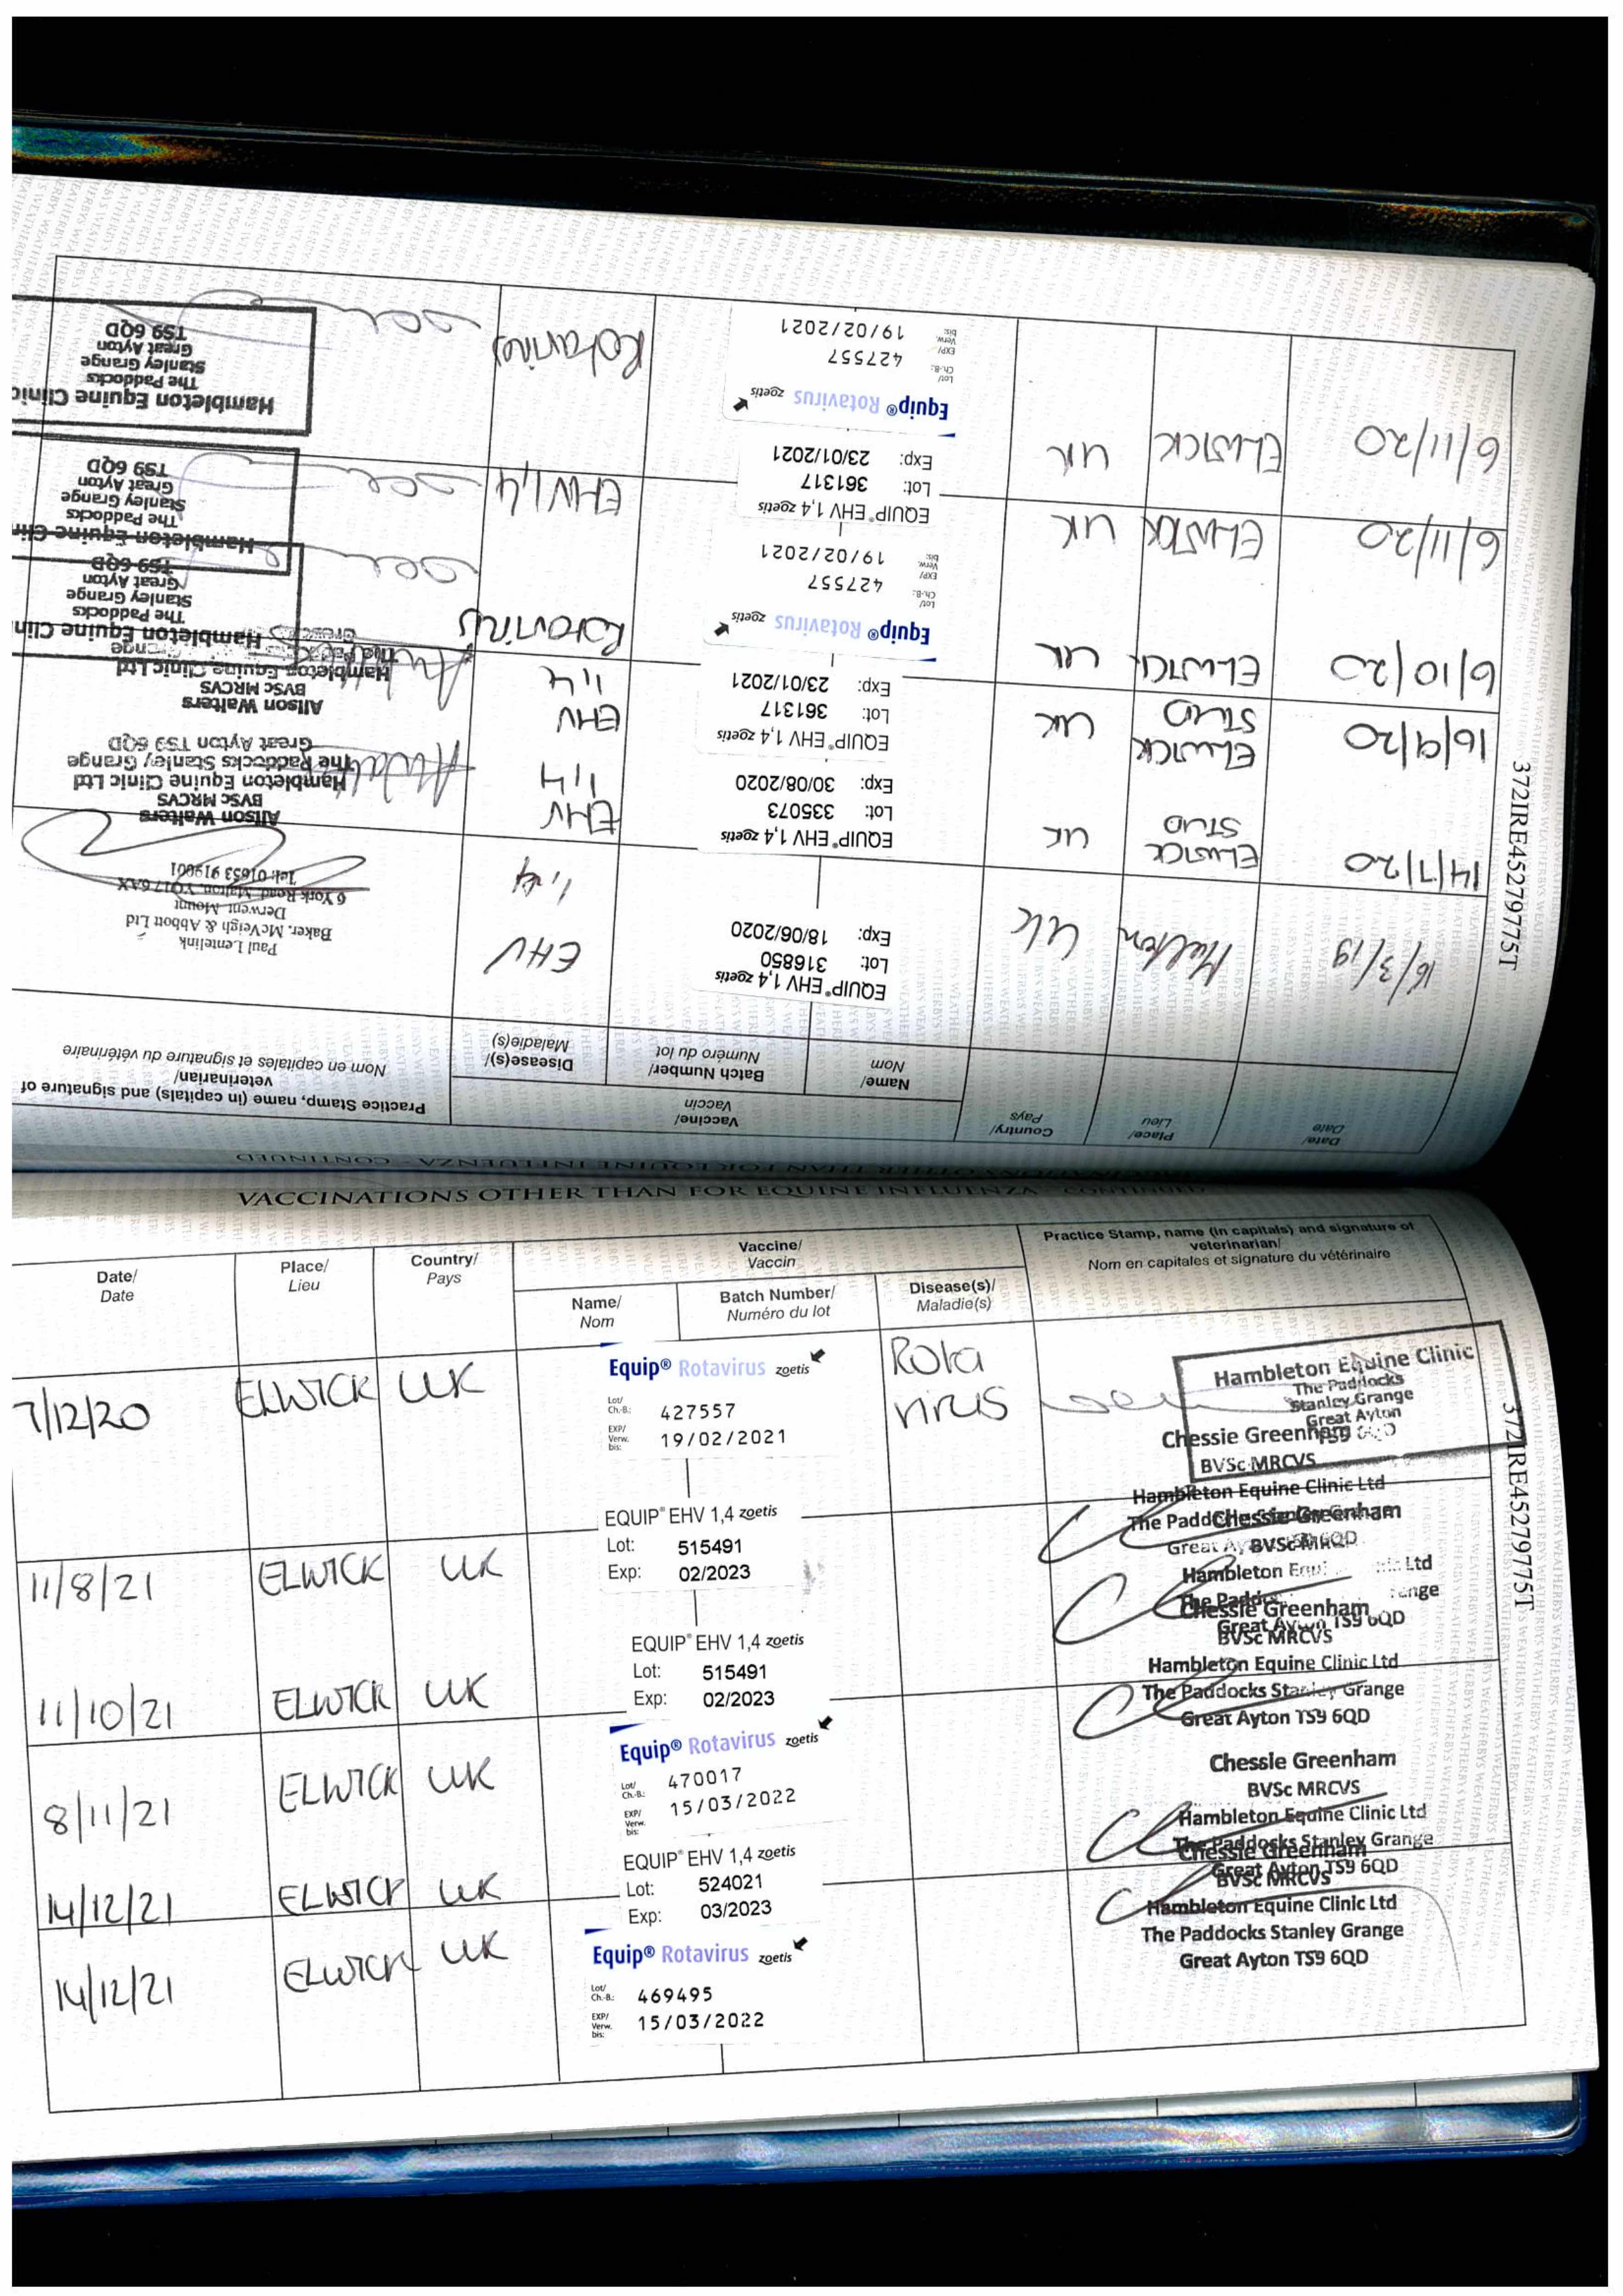 VACCINATIONS OTHER THAN FOR EQUINE INFLUENZA - CONTINUED
Date/
Date
Place/
Lieu
Country/
Pays
Vaccine/
Vaccin
Name/
Nom
Batch Number/
Numéro du lot
Disease(s)/
Maladie(s)
Practice Stamp, name (in capitals) and signature of
veterinarian/
Nom en capitales et signature du vétérinaire
16/3/19 Malton UK
EQUIP® EHV 1,4 zoetis
Lot: 316850
Exp: 18/06/2020
EHV
1,4
Paul Lentelink
Baker, McVeigh & Abbott Ltd
Derwent Mount
6 York Road, Malton, YO17 6AX
Tel: 01653 919001
14/7/20 ELWICK STUD UK
EQUIP® EHV 1,4 zoetis
Lot: 335073
Exp: 30/08/2020
EHV
1,4
Alison Walters
BVSc MRCVS
Hambleton Equine Clinic Ltd
The Paddocks Stanley Grange
Great Ayton TS9 6QD
16/9/20 ELWICK STUD UK
EQUIP® EHV 1,4 zoetis
Lot: 361317
Exp: 23/01/2021
EHV
1,4
Alison Walters
BVSc MRCVS
Hambleton Equine Clinic Ltd
6/10/20 ELWICK UK
Equip® Rotavirus zoetis
Lot/
Ch.-B.: 427557
EXP/
Verw.
bis: 19/02/2021
Rotavirus
Hambleton Equine Clin
The Paddocks
Stanley Grange
Great Ayton
TS9 6QD
6/11/20 ELWICK UK
EQUIP® EHV 1,4 zoetis
Lot: 361317
Exp: 23/01/2021
EHV 1,4
Hambleton Equine Clin
The Paddocks
Stanley Grange
Great Ayton
TS9 6QD
6/11/20 ELWICK UK
Equip® Rotavirus zoetis
Lot/
Ch.-B.: 427557
EXP/
Verw.
bis: 19/02/2021
Rotavirus
Hambleton Equine Clinic
The Paddocks
Stanley Grange
Great Ayton
TS9 6QD
372IRE45279775T
VACCINATIONS OTHER THAN FOR EQUINE INFLUENZA - CONTINUED
Date/
Date
Place/
Lieu
Country/
Pays
Vaccine/
Vaccin
Name/
Nom
Batch Number/
Numéro du lot
Disease(s)/
Maladie(s)
Practice Stamp, name (in capitals) and signature of
veterinarian/
Nom en capitales et signature du vétérinaire
7/12/20 ELWICK UK
Equip® Rotavirus zoetis
Lot/
Ch.-B.: 427557
EXP/
Verw.
bis: 19/02/2021
Rota
virus
Hambleton Equine Clinic
The Paddocks
Stanley Grange
Great Ayton
11/8/21 ELWICK UK
EQUIP® EHV 1,4 zoetis
Lot: 515491
Exp: 02/2023
Chessie Greenham
BVSc MRCVS
Hambleton Equine Clinic Ltd
11/10/21 ELWICK UK
EQUIP® EHV 1,4 zoetis
Lot: 515491
Exp: 02/2023
Chessie Greenham
BVSc MRCVS
Hambleton
Great Ayton TS9 6QD
8/11/21 ELWICK UK
Equip® Rotavirus zoetis
Lot/
Ch.-B.: 470017
EXP/
Verw.
bis: 15/03/2022
Chessie Greenham
BVSc MRCVS
Hambleton Equine Clinic Ltd
The Paddocks Stanley Grange
Great Ayton TS9 6QD
14/12/21 ELWICK UK
EQUIP® EHV 1,4 zoetis
Lot: 524021
Exp: 03/2023
Chessie Greenham
BVSc MRCVS
Hambleton Equine Clinic Ltd
The Paddocks Stanley Grange
Great Ayton TS9 6QD
14/12/21 ELWICK UK
Equip® Rotavirus zoetis
Lot/
Ch.-B.: 469495
EXP/
Verw.
bis: 15/03/2022
Chessie Greenham
BVSc MRCVS
Hambleton Equine Clinic Ltd
The Paddocks Stanley Grange
Great Ayton TS9 6QD
372IRE45279775T